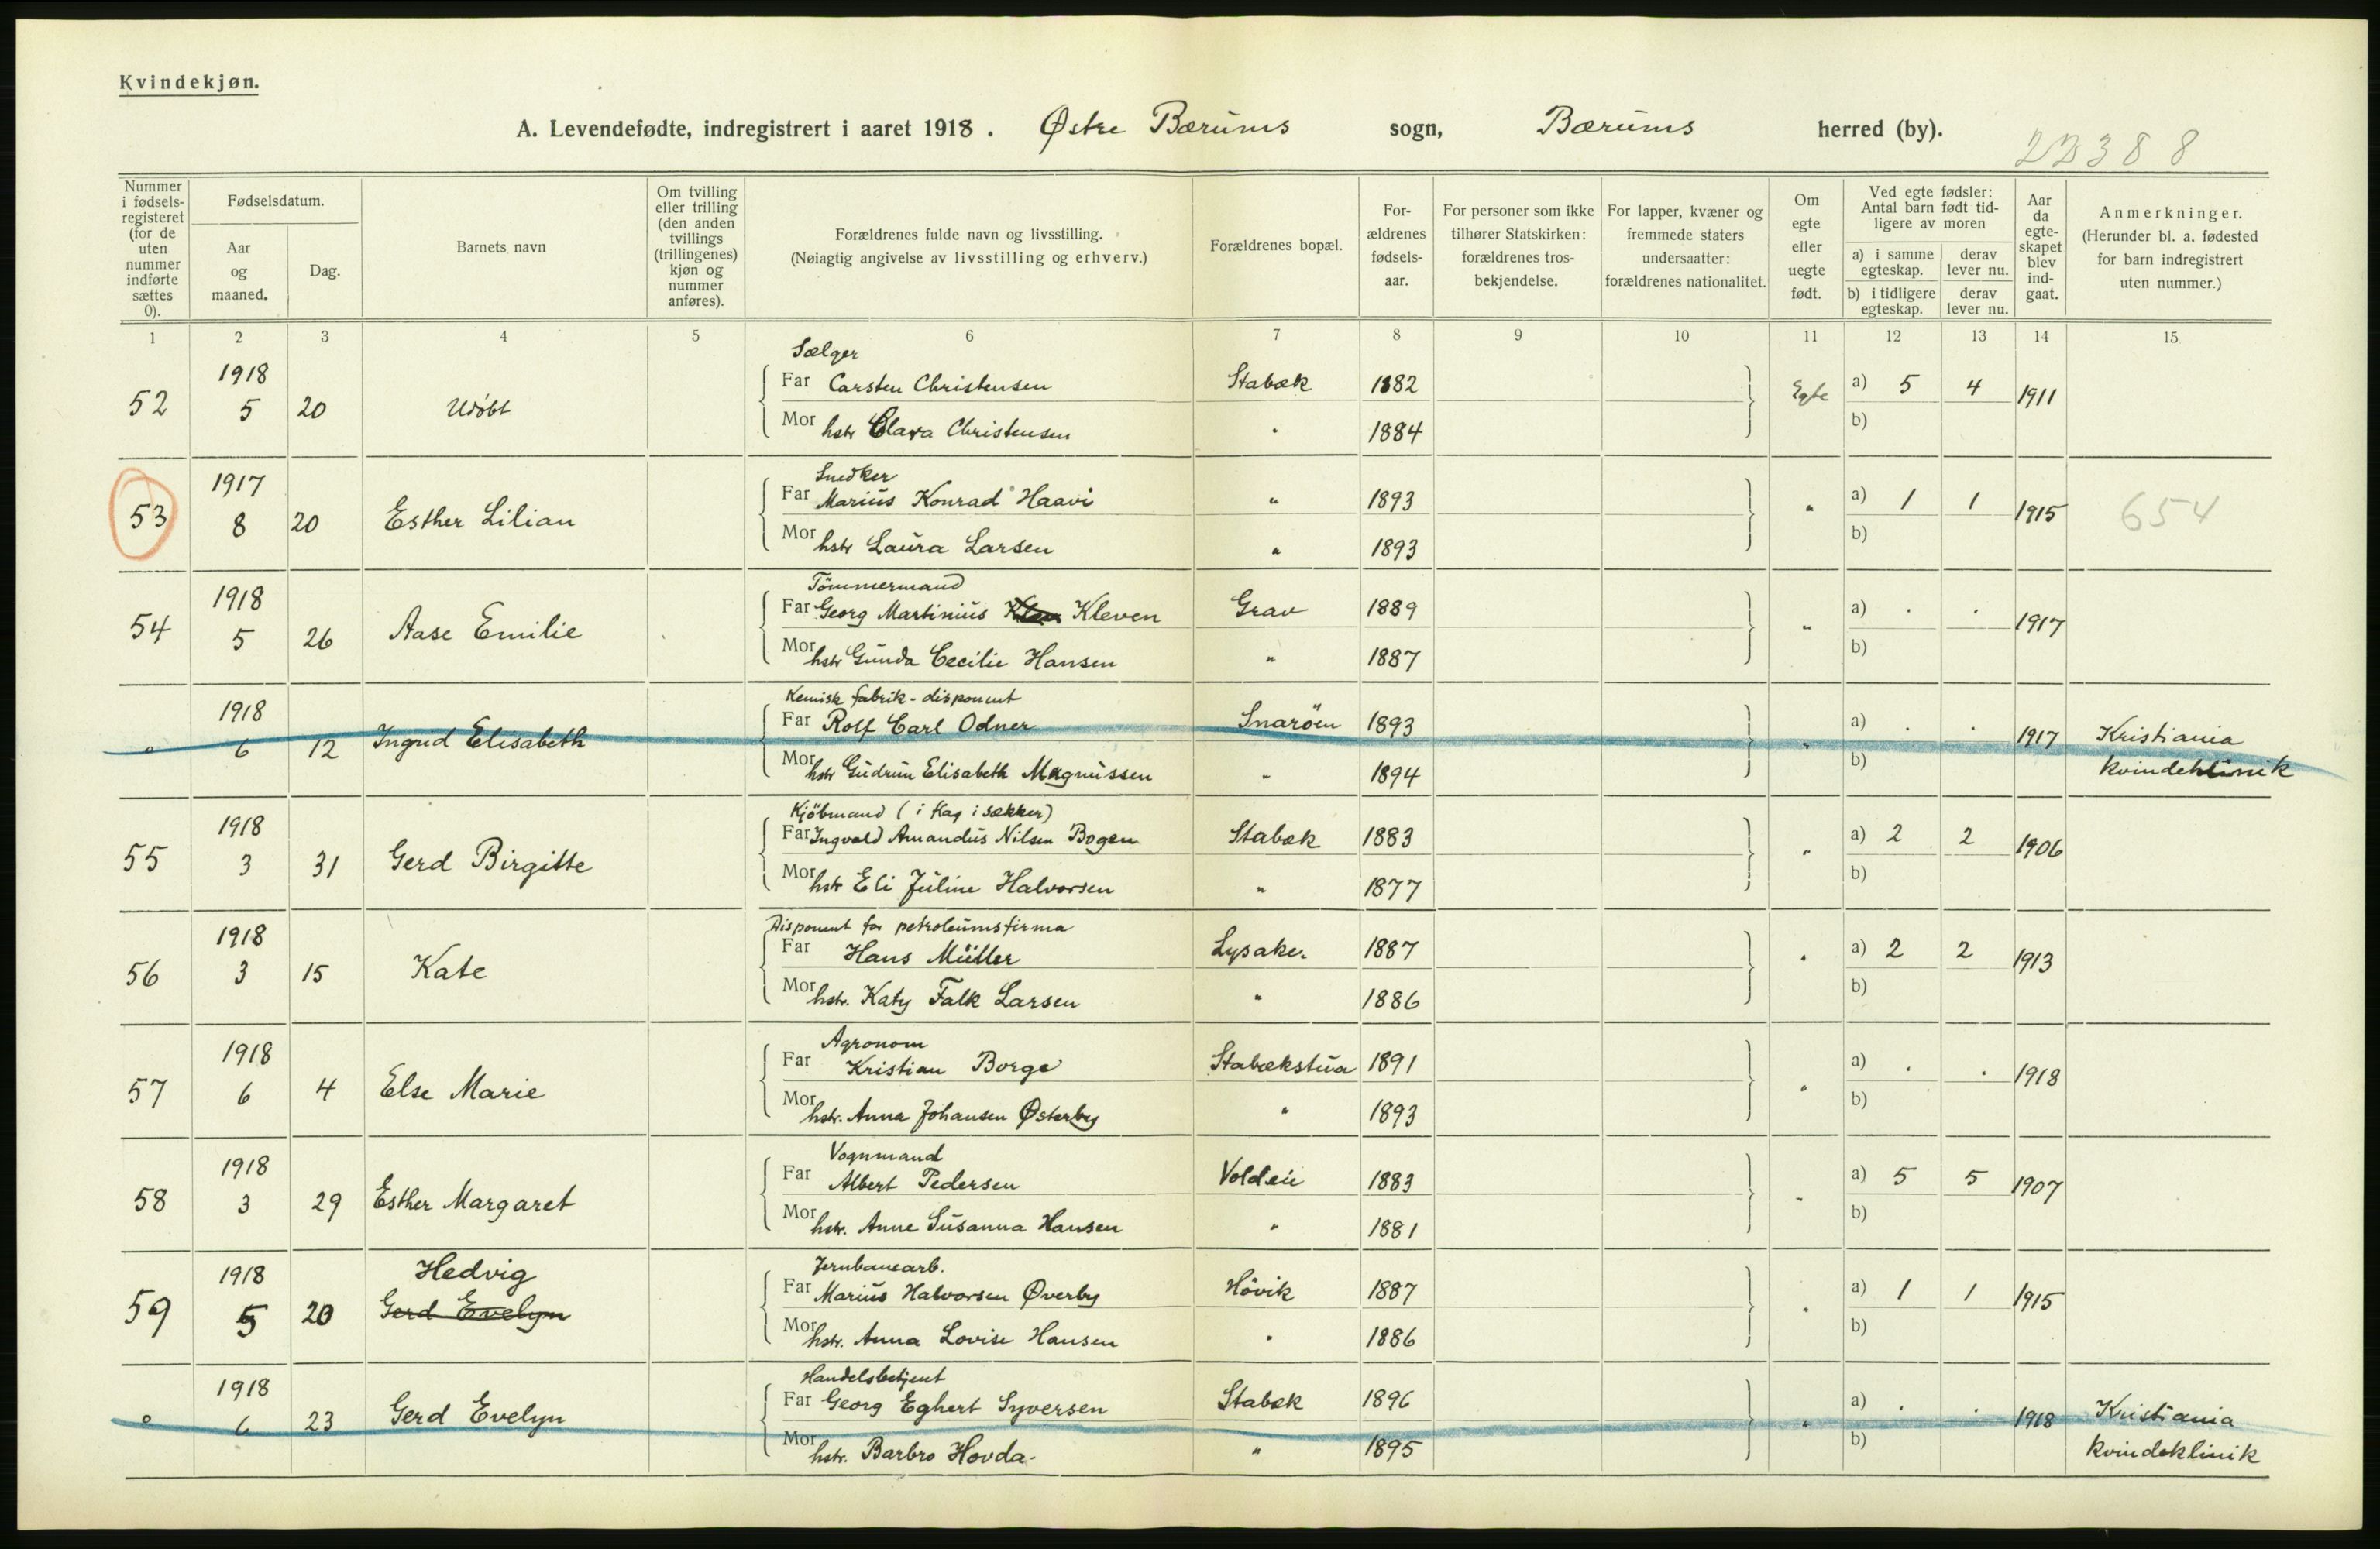 Kvindekjøn.
A. Levendefødte, indregistrert i aaret 1918. Østre Bærums sogn, Bærums herred (by).
22388
Nummer i fødsels-registeret (for de uten nummer indførte sættes 0).
Fødselsdatum.
Aar og maaned.
Dag.
Barnets navn
Om tvilling eller trilling (den anden tvillings (trillingenes) kjøn og nummer anføres).
Forældrenes fulde navn og livsstilling.
(Nøiagtig angivelse av livsstilling og erhverv.)
Forældrenes bopæl.
For-ældrenes fødsels-aar.
For personer som ikke tilhører Statskirken: forældrenes tros-bekjendelse.
For lapper, kvæner og fremmede staters undersaatter: forældrenes nationalitet.
Om egte eller uegte født.
Ved egte fødsler: Antal barn født tid-ligere av moren
a) i samme egteskap.
derav lever nu.
b) i tidligere egteskap.
derav lever nu.
Aar da egte-skapet blev ind-gaat.
Anmerkninger.
(Herunder bl. a. fødested for barn indregistrert uten nummer.)
1 2 3 4 5 6 7 8 9 10 11 12 13 14 15
Sælger
1918 Far Carsten Christensen Stabæk 1882 Egte a) 5 4 1911
52 5 20 Udøbt
Mor hstr Clara Christensen " 1884 b)
Snedker
1917 Far Marius Konrad Haavi " 1893 " a) 1 1 1915 654
53 8 20 Esther Lilian
Mor hstr Laura Larsen " 1893 b)
Tömmermand
1918 Far Georg Martinius Kleven Grav 1889 a) . . 1917
54 5 26 Aase Emilie "
Mor hstr Gunda Cecilie Hansen " 1887 b)
Kemisk fabrik-disponent
1918 Far Rolf Carl Odner Snaröen 1893 a) . . 1917 Kristiania
0 6 12 Ingrid Elisabeth "
Mor hstr Gudrun Elisabeth Magnussen " 1894 b) kvindeklinik
Kjöbmand (i sækker)
1918 Far Ingvald Amandus Nilsen Bogen Stabæk 1883 a) 2 2 1906
55 3 31 Gerd Birgitte "
Mor hstr Eli Juline Halvorsen " 1877 b)
Disponent for petroleumsfirma
1918 Far Hans Müller Lysaker 1887 " a) 2 2 1913
56 3 15 Kate
Mor hstr. Katy Falk Larsen " 1886 b)
Agronom
1918 Far Kristian Borge Stabækstua 1891 a) . . 1918
57 6 4 Else Marie "
Mor hstr. Anna Johansen Østerby " 1893 b)
Vognmand
1918 Far Albert Pedersen Voldeie 1883 a) 5 5 1907
58 3 29 Esther Margaret "
Mor hstr. Anne Susanna Hansen " 1881 b)
Jernbanearb.
1918 Hedvig Far Marius Halvorsen Øverby Hövik 1887 a) 1 1 1915
59 5 20 Gerd Evelyn "
Mor hstr. Anna Lovise Hansen " 1886 b)
Handelsbetjent
1918 Far Georg Eghert Syversen Stabæk 1896 a) . . 1918 Kristiania
0 6 23 Gerd Evelyn "
Mor hstr. Barbro Hovda " 1895 b) kvindeklinik